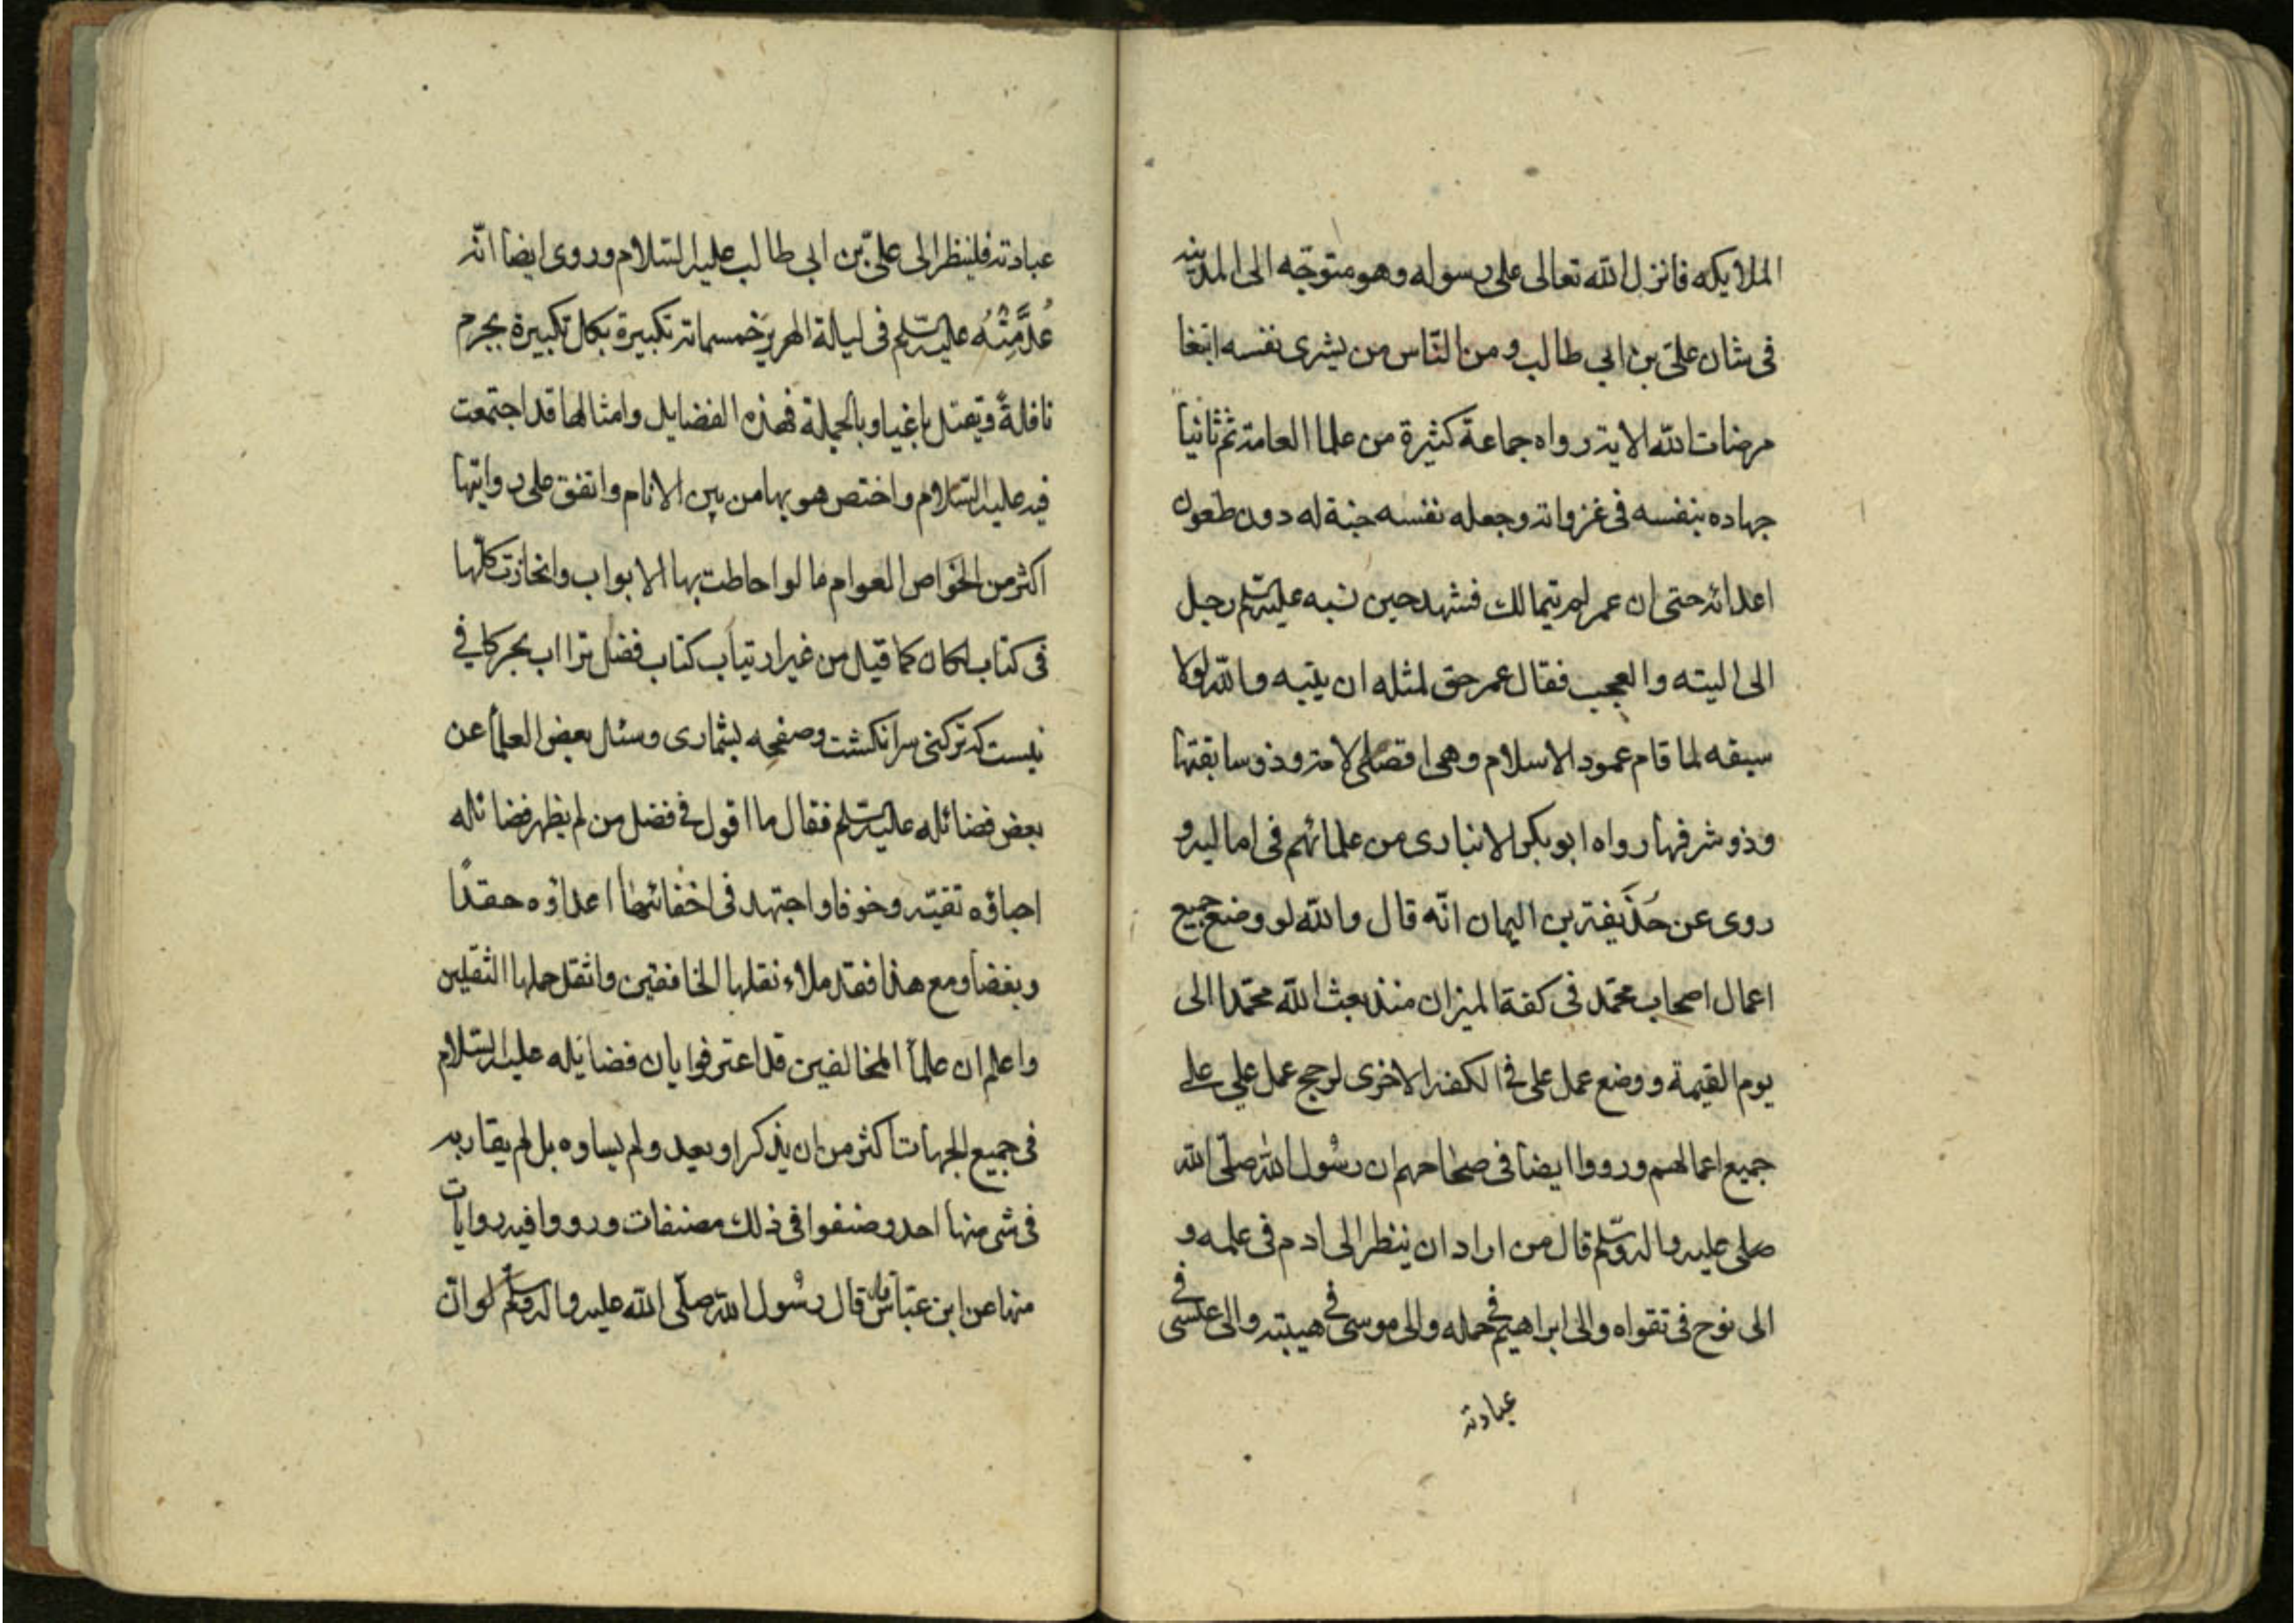 الملائكه فانزل الله تعالى على رسوله وهو متوجّه الى المدينه
فى شان على بن ابى طالب ومن النّاس من يشرى نفسه ابتغا
مرضات الله الاية رواه جماعة كثيرة من علما العامة ثم ثانياً
جهاده بنفسه فى غزواته وجعله نفسه جنة له دون طعون
اعدائه حتى ان عمر لم يتمالك فشهد حين نسبه عليه السّلم رجل
الى التيه والعجب فقال عمر حق لمثله ان يتيه والله لولا
سيفه لما قام عمود الاسلام وهى اقضى الامة وذو سابقتها
وذو شرفها رواه ابوبكر الانبارى من علمائهم فى اماليه و
روى عن حُذَيفة بن اليمان انّه قال والله لو وضع جميع
اعمال اصحاب محمّد فى كفة الميزان منذ بعث الله محمّدا الى
يوم القيمة ووضع عمل على فى الكفة الاخرى لرجح عمل على على
جميع اعمالهم ورووا ايضا فى صحاحهم ان رسُول الله صلّى الله
صلى عليه واله وسلّم قال من اراد ان ينظر الى ادم فى علمه و
الى نوح فى تقواه والى ابراهيم فى حمله والى موسى فى هيبته والى عيسى فى
عبادته
عبادته فلينظر الى علىّ بن ابى طالب عليه السّلام وروى ايضا انّه
عُدَّ مِنْهُ عليه السّلم فى ليلة الهرير خمسماة تكبيرة بكل تكبيرة يحرم
نافلةً ويقتل باغيا وبالجملة فهذه الفضايل وامثالها قد اجتمعت
فيه عليه السّلام واختص هو بها من بين الانام واتفق على روايتها
اكثر من الخواص العوام ما لو احاطت بها الابواب وانحازت كلّها
فى كتاب لكان كما قيل من غير ارتياب كتاب فضل ترا اب بحر كافى
نيست كه تر كنى سر انكشت وصفحه بشمارى وسئل بعض العلمأ عن
بعض فضائله عليه السّلم فقال ما اقول فى فضل من لم يظهر فضائله
احباؤه تقيّة وخوفا واجتهد فى اخفائها اعداؤه حقدًا
وبغضا ومع هذا فقد ملاء نقلها الخافقين واثقل حملها الثقلين
واعلم ان علمأ المخالفين قد اعترفوا بان فضايله عليه السّلام
فى جميع الجهات اكثر من ان يذكر او يعد ولم يساوه بل لم يقاربه
فى شى منها احد وصنفوا فى ذلك مصنفات ورووا فيه روايات
منها عن ابن عبّاس قال قال رسُول الله صلّى الله عليه واله وسلّم لو انّ